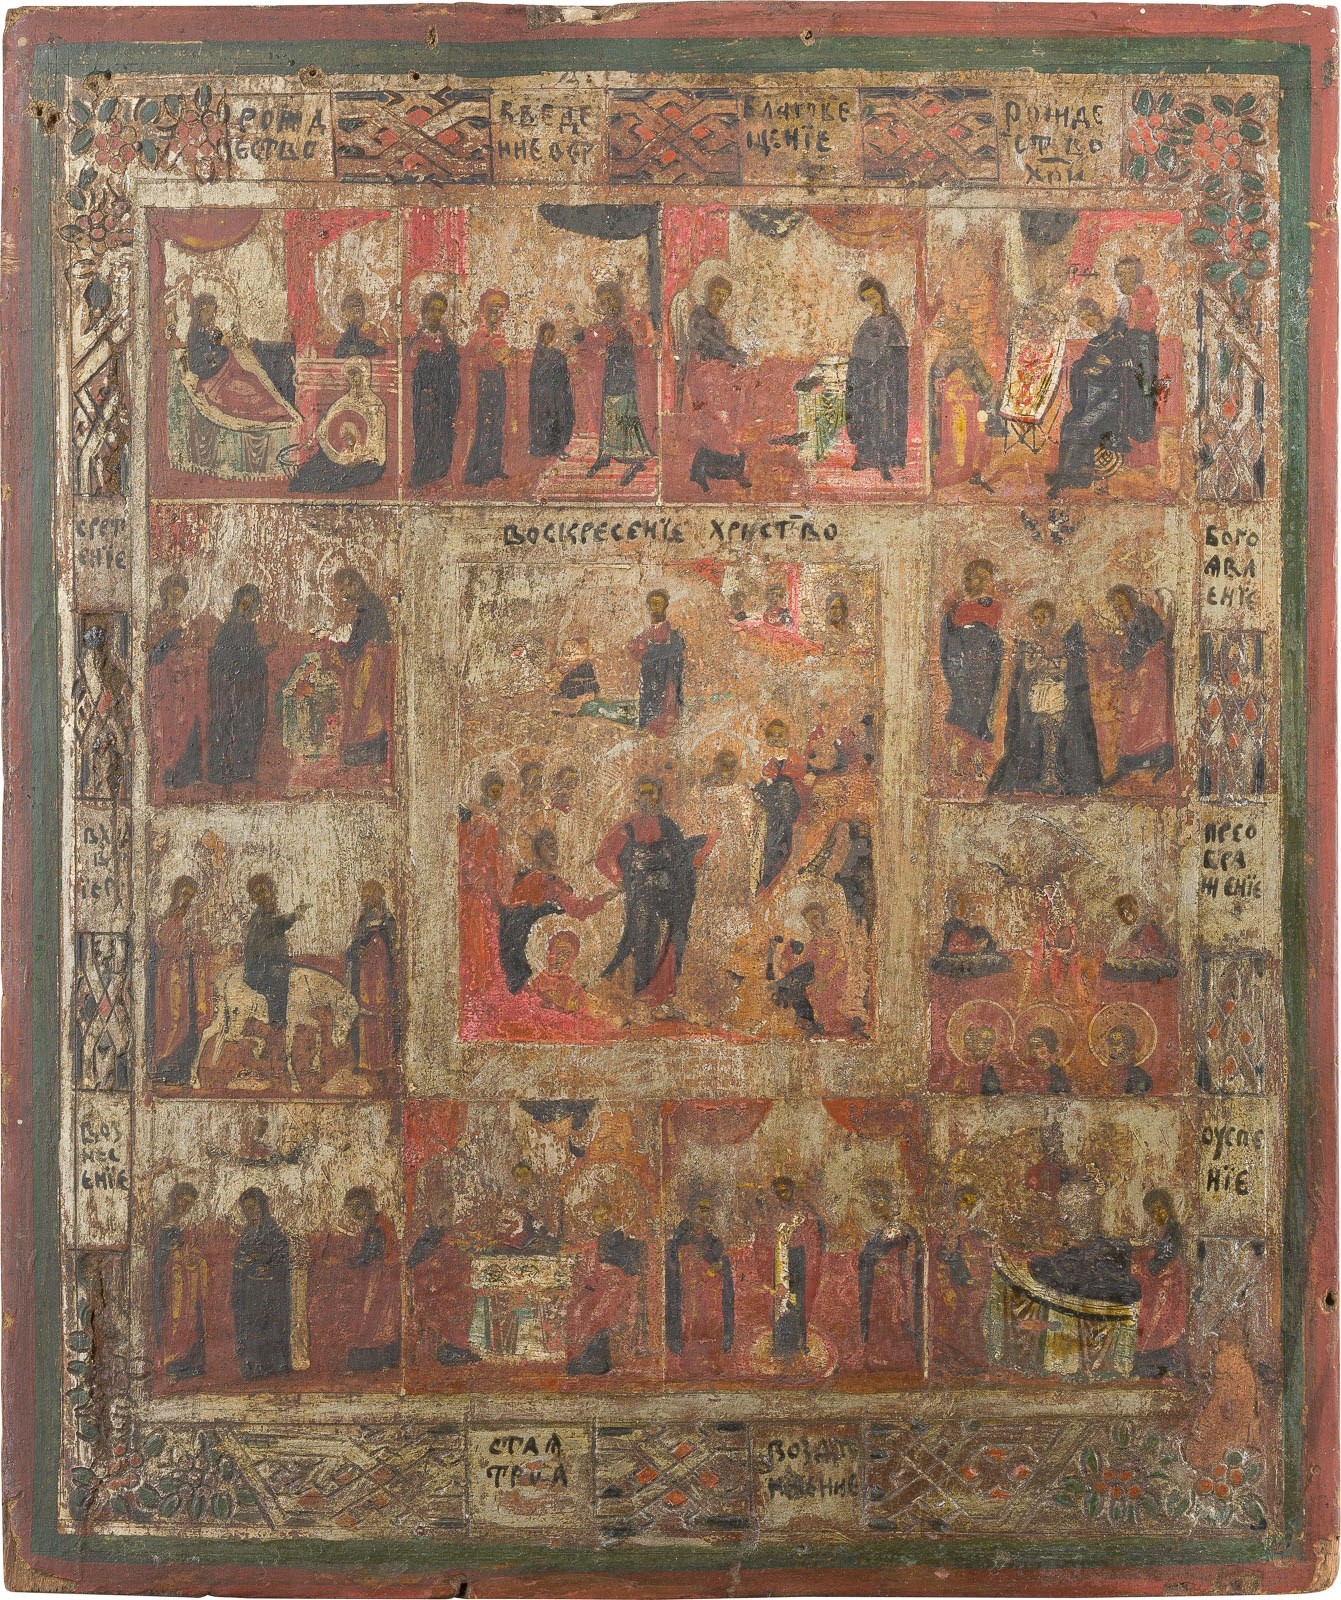 РОЖД
ЕСТВО
ВВЕДЕ
НИЕ
БЛАГОВЕ
ЩЕНЇЕ
РОЖДЕ
СТВО
ХРИ
СРЕТ
ЕНЇЕ
ВОСКРЕСЕНЇЕ ХРИСТВО
БОГО
ЯВЛ
ЕНЇЕ
ВХОД
В
ІЕР
ПРЕО
БРА
ЖЕНЇЕ
ВОЗ
НЕС
ЕНЇЕ
ОУСПЕ
НЇЕ
СТАЯ
ТРИА
ВОЗДВ